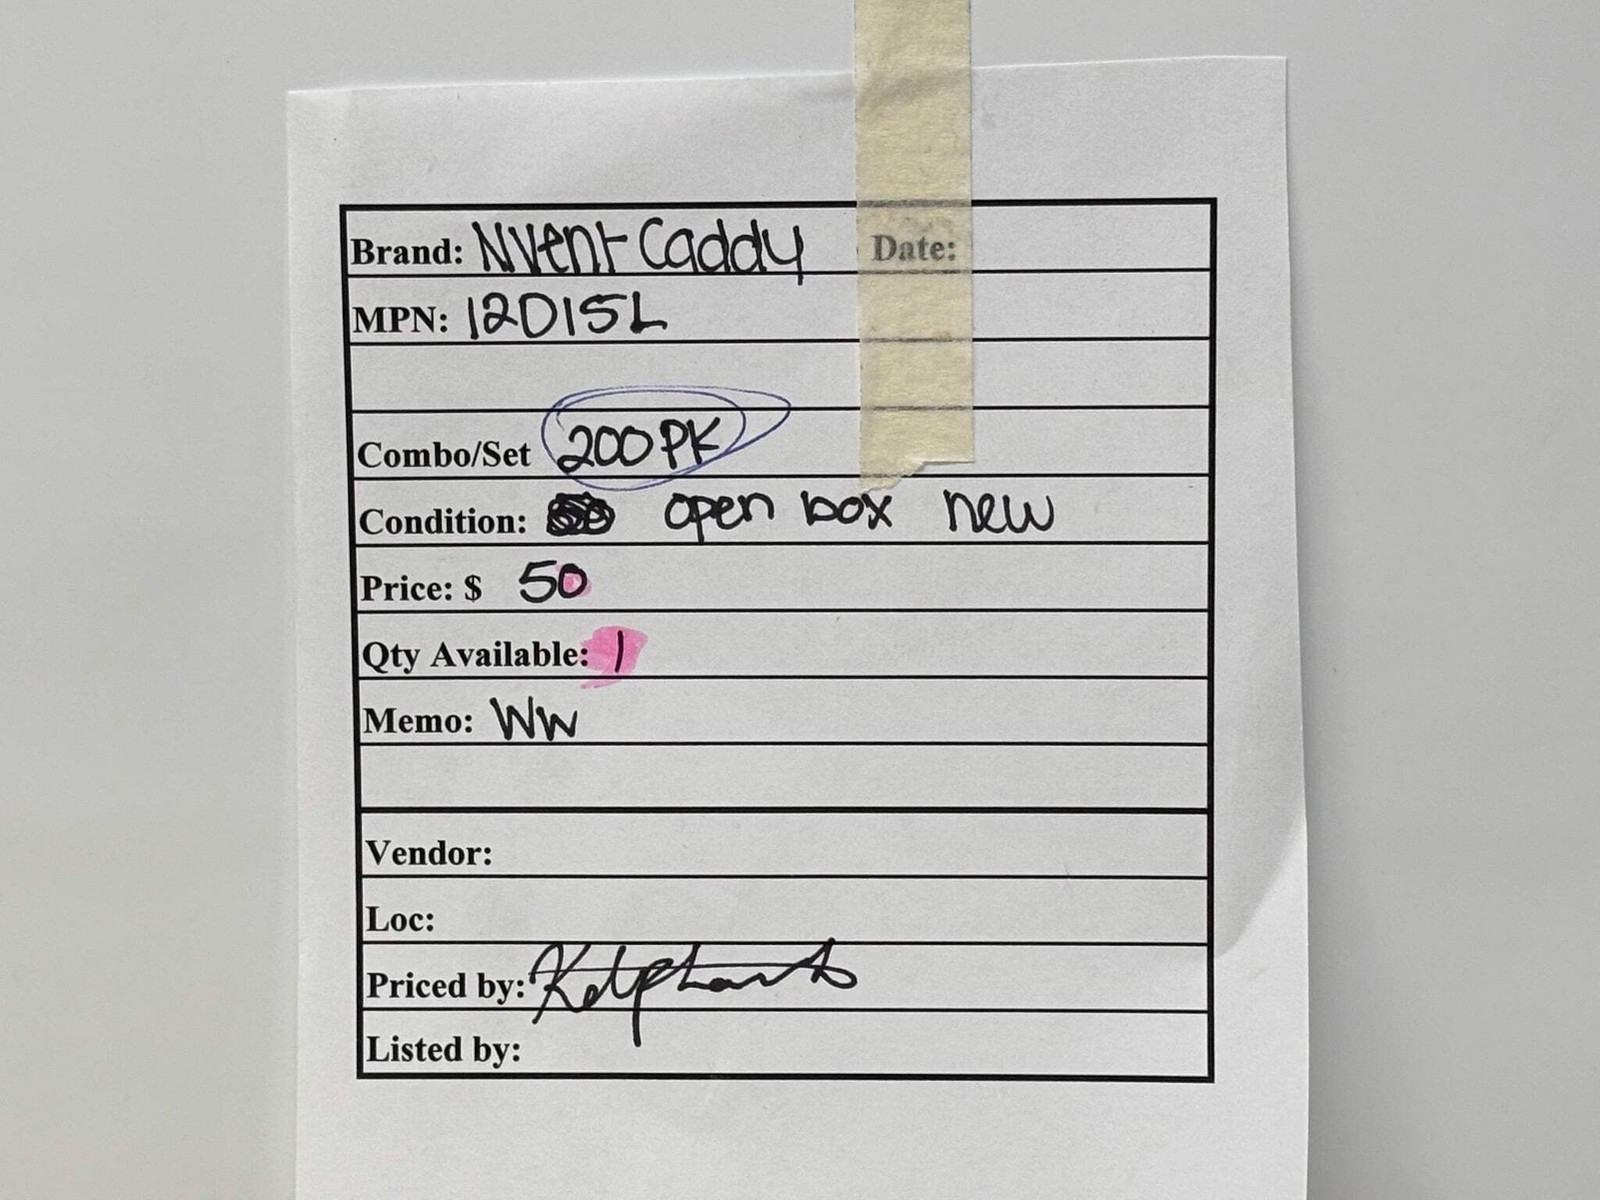 Brand: NVent Caddy Date:
MPN: 12015L
Combo/Set 200PK
Condition: open box new
Price: $ 50
Qty Available: 1
Memo: WW
Vendor:
Loc:
Priced by:
Listed by: